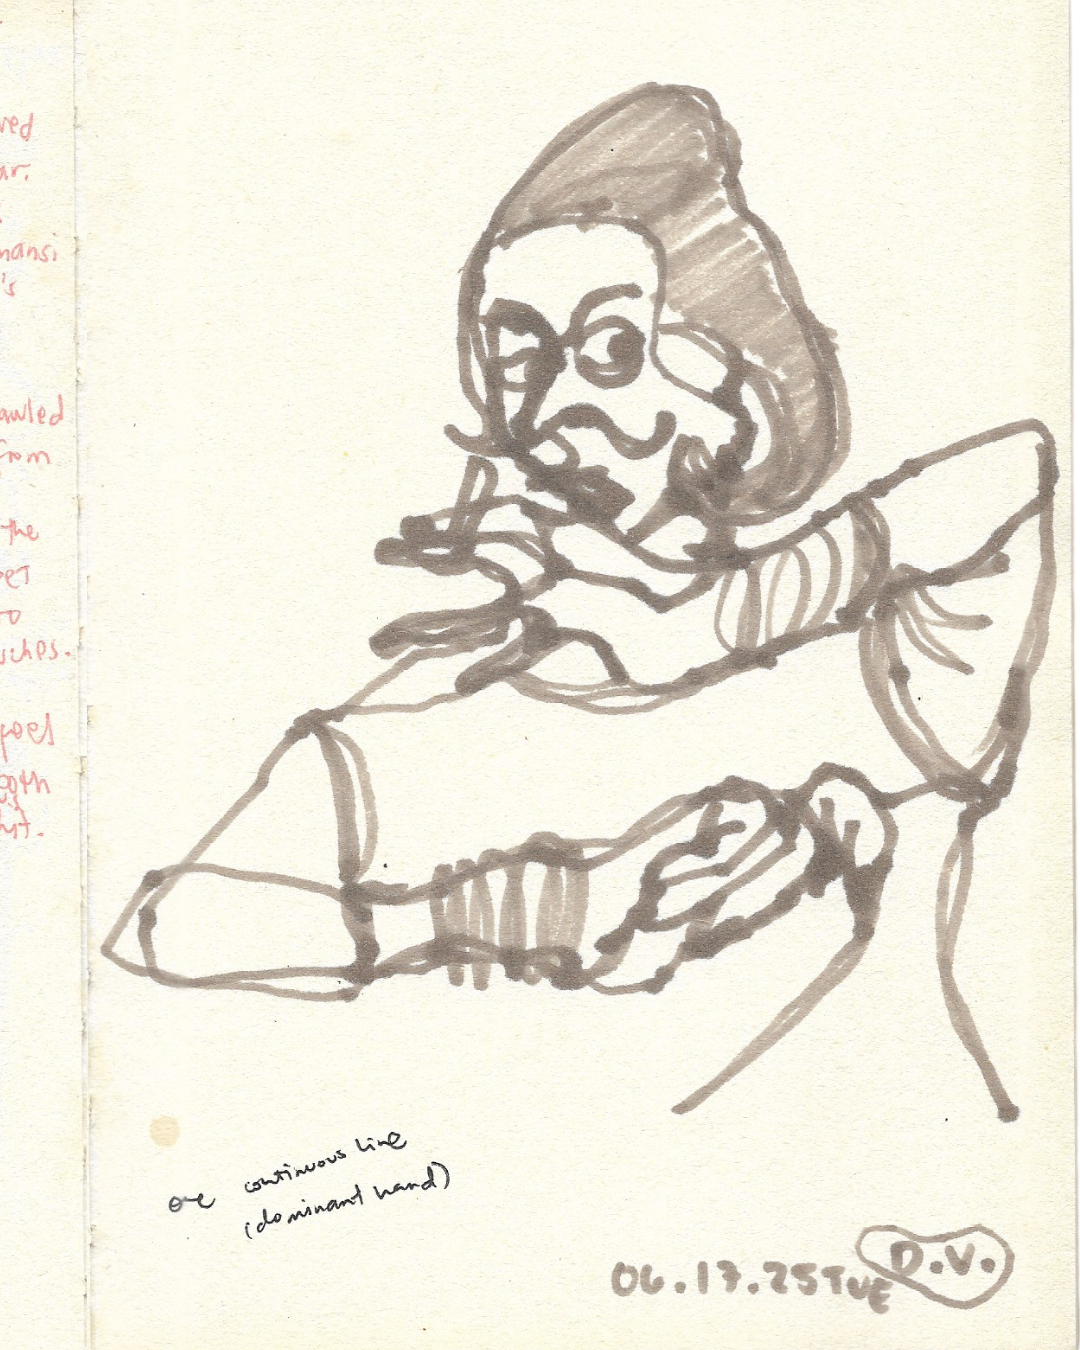 ved
ar.
mansi
's
awled
from
the
to
uches.
feel
ooth
hit.
one continuous line
(dominant hand)
06.17.25 TUE D.V.